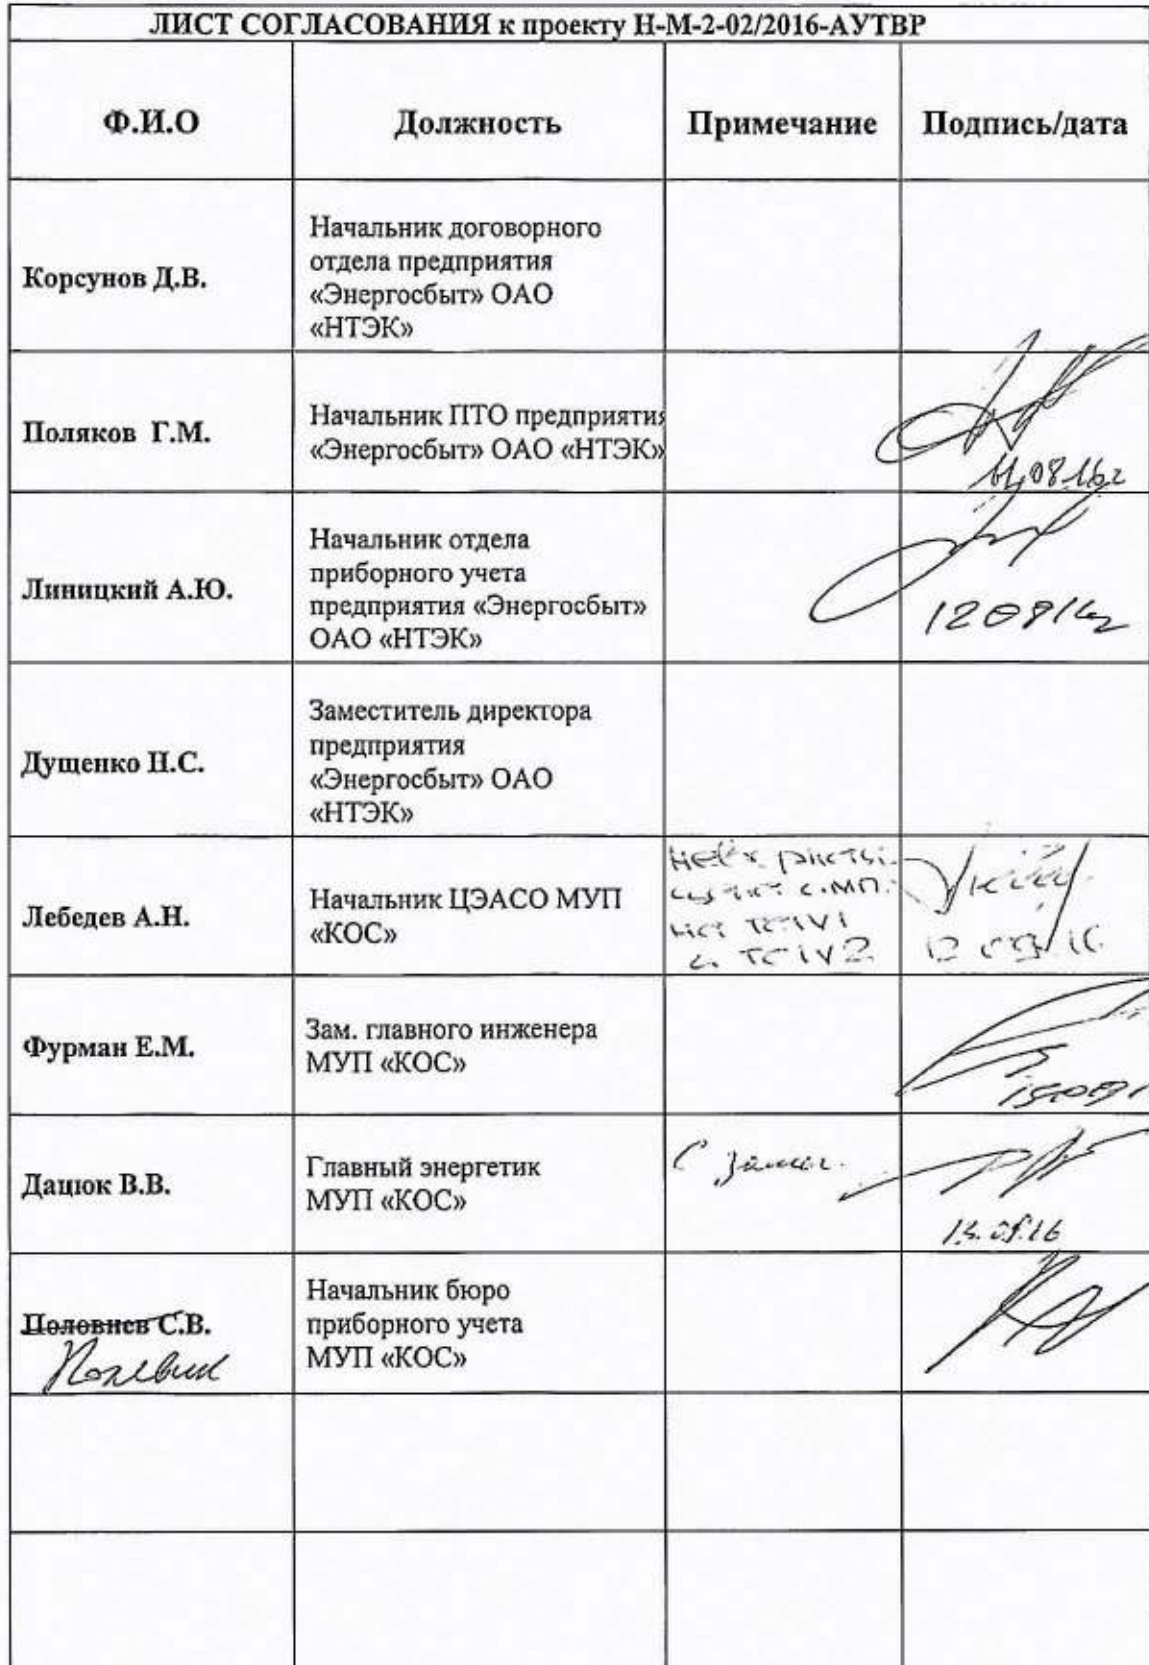 ЛИСТ СОГЛАСОВАНИЯ к проекту Н-М-2-02/2016-АУТВР
Ф.И.О Должность Примечание Подпись/дата
Корсунов Д.В.
Начальник договорного
отдела предприятия
«Энергосбыт» ОАО
«НТЭК»
Поляков Г.М.
Начальник ПТО предприятия
«Энергосбыт» ОАО «НТЭК»
11.08.16г
Линицкий А.Ю.
Начальник отдела
приборного учета
предприятия «Энергосбыт»
ОАО «НТЭК»
120816г
Дущенко Н.С.
Заместитель директора
предприятия
«Энергосбыт» ОАО
«НТЭК»
Лебедев А.Н.
Начальник ЦЭАСО МУП
«КОС»
на TCIV1
и TCIV2
Фурман Е.М.
Зам. главного инженера
МУП «КОС»
Дацюк В.В.
Главный энергетик
МУП «КОС»
С замеч.
Половнев С.В.
Начальник бюро
приборного учета
МУП «КОС»